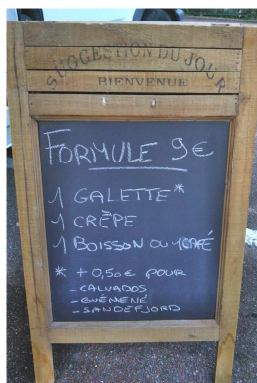 SUGGESTION DU JOUR
BIENVENUE
FORMULE 9€
1 GALETTE*
1 CRÊPE
1 BOISSON OU 1 CAFÉ
* + 0,50€ POUR
- CALVADOS
- GUÉMENÉ
- SANDEFJORD